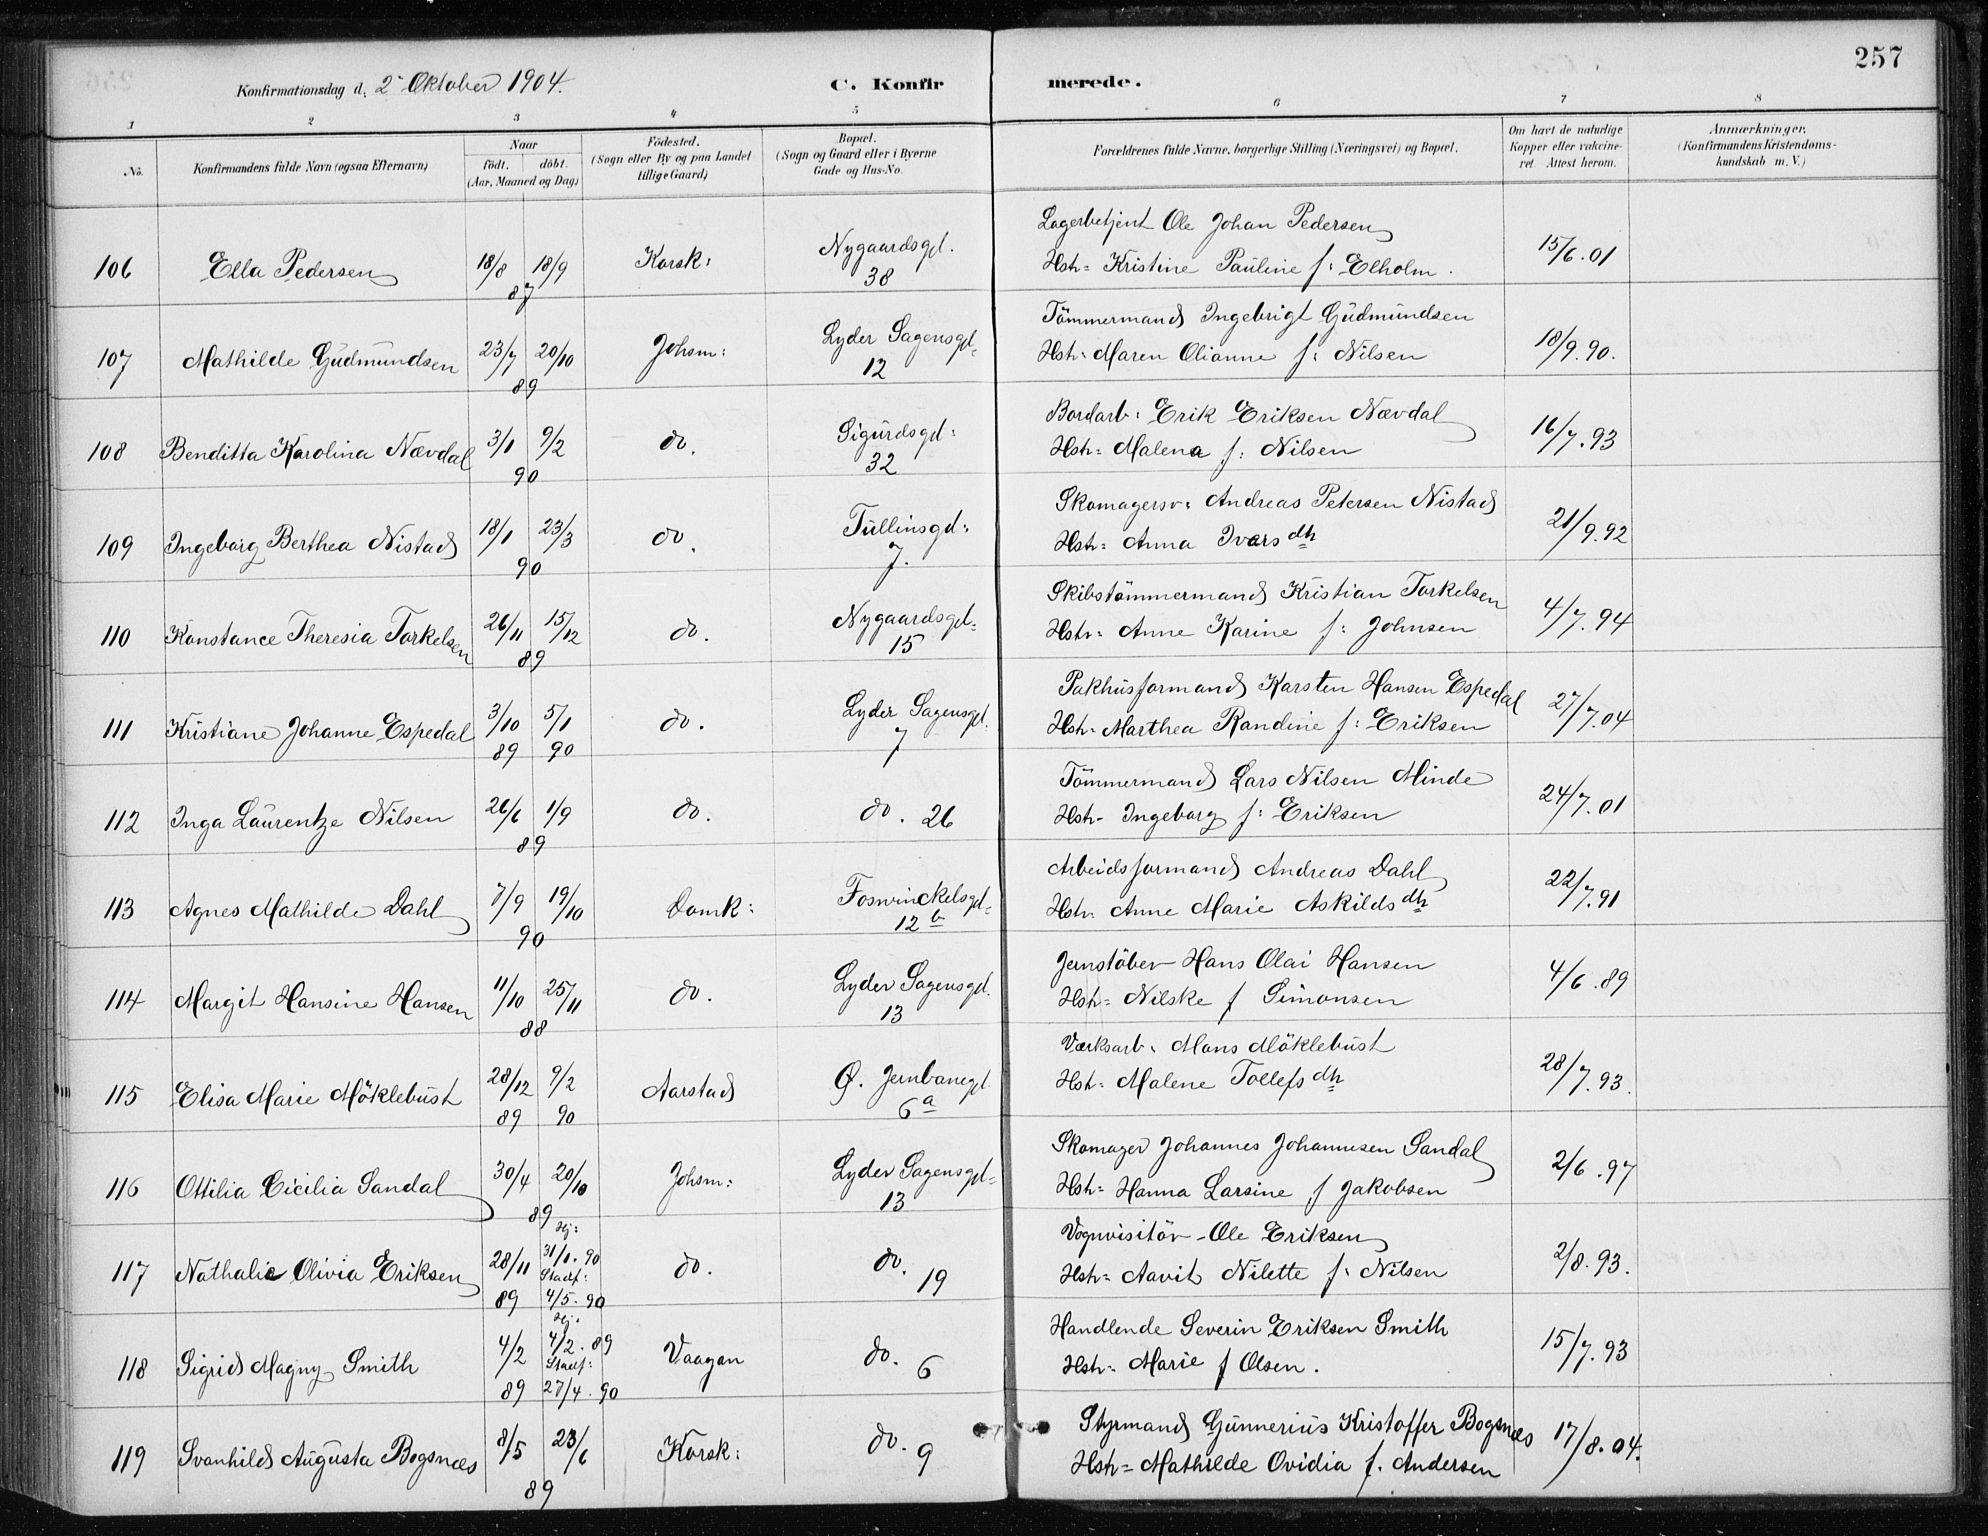 257
Konfirmationsdag d. 2 Oktober 1904.
C. Konfirmerede.
1 2 3 4 5 6 7 8
No.
Konfirmandens fulde Navn (ogsaa Efternavn)
Naar
födt. döbt.
(Aar, Maaned og Dag)
Födested.
(Sogn eller By og paa Landet
tillige Gaard)
Bopæl.
(Sogn og Gaard eller i Byerne
Gade og Hus-No.
Forældrenes fulde Navne, borgerlige Stilling (Næringsvei) og Bopæl.
Om havt de naturlige
Kopper eller vakcine-
ret. Attest herom.
Anmærkninger.
(Konfirmandens Kristendoms-
kundskab m. V.)
106 Ella Pedersen 18/8 18/9 87 Korsk: Nygaardsgd. 38
Lagerbetjent Ole Johan Pedersen
Hstr= Kristine Pauline f: Elholm. 15/6.01
107 Mathilde Gudmundsen 23/7 20/10 89 Johsm: Lyder Sagensgd= 12
Tömmermand Ingebrigt Gudmundsen
Hstr= Maren Olianne f: Nilsen 18/9.90.
108 Benditta Karolina Nævdal 3/1 9/2 90 do. Sigurdsgd: 32
Bordarb: Erik Eriksen Nævdal
Hstr= Malena f: Nilsen 16/7.93
109 Ingeborg Berthea Nistad 18/1 23/3 90 do. Tullinsgd: 7.
Skomagersv: Andreas Petersen Nistad
Hstr= Anna Ivers dtr 21/9.92
110 Konstance Theresia Torkelsen 26/11 15/12 89 do. Nygaardsgd= 15
Skibstömmermand Kristian Torkelsen
Hstr= Anne Karine f: Johnsen 4/7.94
111 Kristiane Johanne Espedal 3/10 89 5/1 90 do. Lyder Sagensgd. 7
Pakhusformand Karsten Hansen Espedal
Hstr= Marthea Randine f: Eriksen 27/7.04
112 Inga Laurentze Nilsen 26/6 1/9 89 do. do. 26
Tömmermand Lars Nilsen Minde
Hstr- Ingeborg f: Eriksen 24/7.01
113 Agnes Mathilde Dahl 7/9 19/10 90 Domk: Foswinckelsgd= 12 b
Arbeidsformand Andreas Dahl
Hstr= Anne Marie Askilds dtr 22/7.91
114 Margit Hansine Hansen 11/10 25/11 88 do. Lyder Sagensgd. 13
Jernstöber Hans Olai Hansen
Hstr= Nilske f Simonsen 4/6.89
115 Elisa Marie Möklebust 28/12 89 9/2 90 Aarstad Ø. Jernbanegd 6 a
Værksarb: Mons Möklebust
Hstr= Malene Tollefs dtr 28/7.93.
116 Ottilia Cicilia Sandal 30/4 20/10 89 Johsm: Lyder Sagensgd= 13
Skomager Johannes Johannesen Sandal
Hstr= Hanna Larsine f Jakobsen 2/6.97
117 Nathalie Olivia Eriksen 28/11 89 Hj: 31/1.90 Stadf: 4/5.90 do. do. 19
Vognvisitör Ole Eriksen
Hstr= Aavit Nilette f: Nilsen 2/8.93.
118 Sigrid Magny Smith 4/2 89 Hj: 4/2.89 Stadf: 27/4.90 Vaagan do. 6
Handlende Severin Eriksen Smith
Hstr= Marie f Olsen. 15/7.93
119 Svanhild Augusta Bogsnæs 8/5 23/6 89 Korsk: do. 9
Styrmand Gunnerius Kristoffer Bogsnæs
Hstr= Mathilde Ovidia f. Andersen 17/8.04.